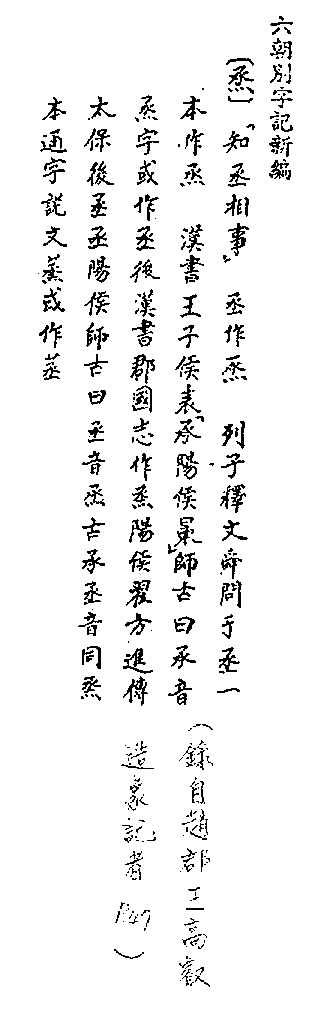 六朝別字記新編
〔烝〕「知丞相事」 丞作烝 列子釋文舜問于丞一
本作烝 漢書王子侯表「承陽侯景」師古曰承音
烝字或作丞後漢書郡國志作烝陽侯翟方進傳
太保後丞丞陽侯師古曰丞音烝古承丞音同烝
本通字説文蒸或作𦯔
(錄自趙郡王高叡
造象記者
P.47)